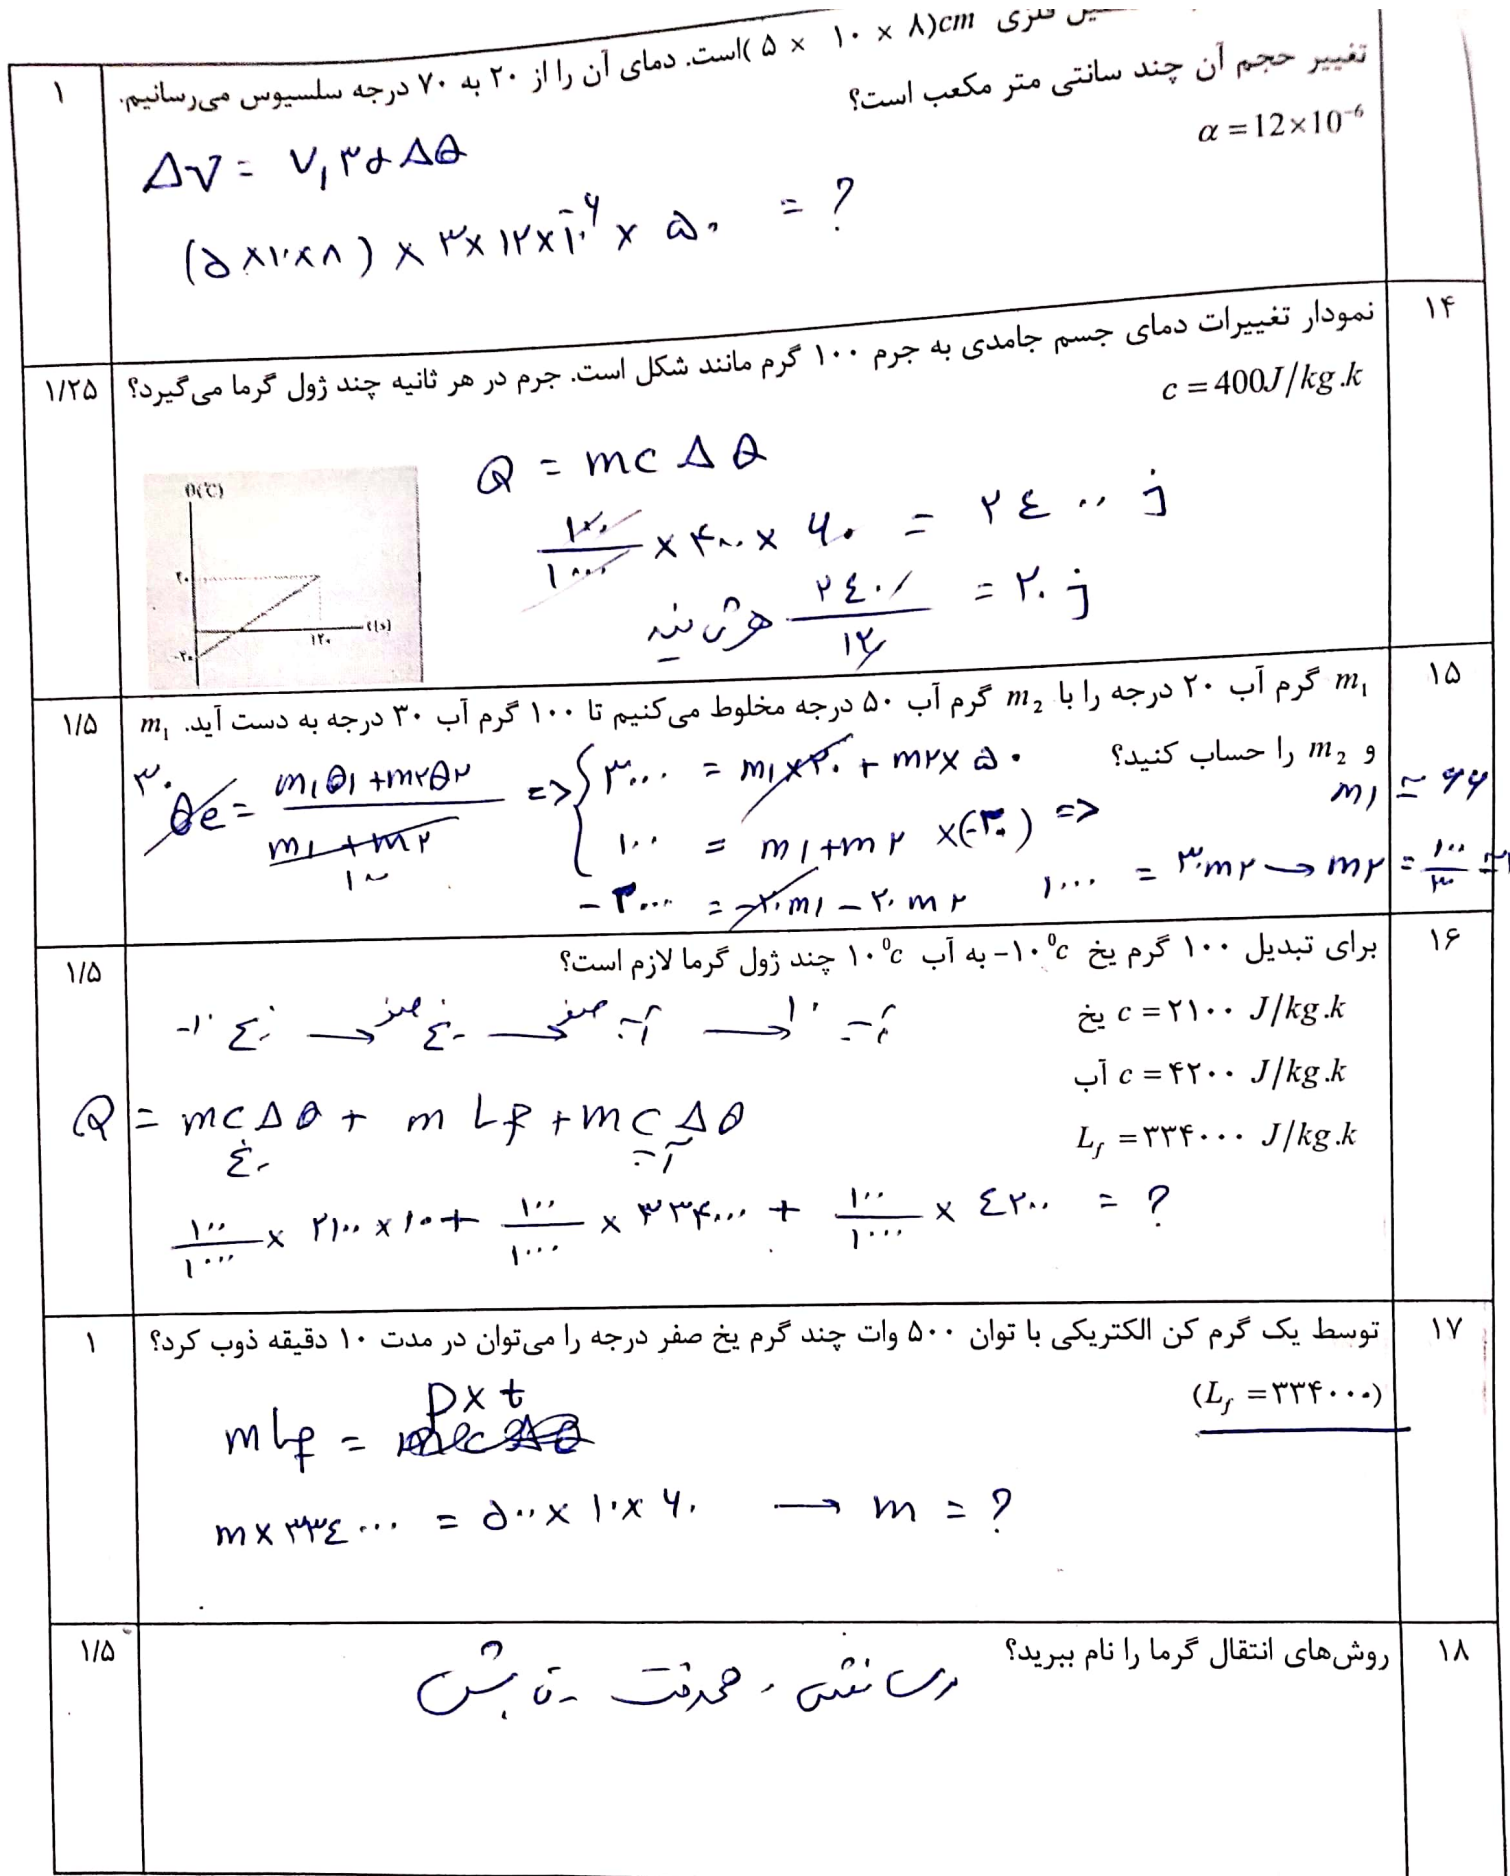 فلزی ۵ × ۱۰ × ۸)cm)است. دمای آن را از ۲۰ به ۷۰ درجه سلسیوس می‌رسانیم.
۱
تغییر حجم آن چند سانتی متر مکعب است؟
α = 12×10⁻⁶
ΔV = V₁ ۳α Δθ
(۵×۱۰×۸) × ۳×۱۲×۱۰⁻⁶ × ۵۰ = ?
۱۴
نمودار تغییرات دمای جسم جامدی به جرم ۱۰۰ گرم مانند شکل است. جرم در هر ثانیه چند ژول گرما می‌گیرد؟
۱/۲۵
c = 400J/kg.k
Q = mc Δθ
θ(℃)
۱۰۰/۱۰۰۰ × ۴۰۰ × ۶۰ = ۲۴۰۰ j
۲۰
هر ثانیه ۲۴۰۰/۱۲۰ = ۲۰ j
۱۲۰ t(s)
-۲۰
۱۵
m₁ گرم آب ۲۰ درجه را با m₂ گرم آب ۵۰ درجه مخلوط می‌کنیم تا ۱۰۰ گرم آب ۳۰ درجه به دست آید. m₁
۱/۵
و m₂ را حساب کنید؟
۳۰ θe = m₁θ₁ + m₂θ₂ / m₁ + m₂ ۱۰۰ => ۳۰۰۰ = m₁×۲۰ + m₂×۵۰
m₁ ≃ ۶۶
۱۰۰ = m₁ + m₂ ×(-۲۰) =>
-۲۰۰۰ = -۲۰m₁ - ۲۰m₂
۱۰۰۰ = ۳۰m₂ → m₂ = ۱۰۰/۳
۱۶
برای تبدیل ۱۰۰ گرم یخ ۱۰⁰c- به آب ۱۰⁰c چند ژول گرما لازم است؟
۱/۵
یخ c = ۲۱۰۰ J/kg.k
یخ -۱۰ → یخ صفر → آب صفر → آب ۱۰
آب c = ۴۲۰۰ J/kg.k
Q = mcΔθ + m Lf + mcΔθ
L_f = ۳۳۴۰۰۰ J/kg.k
یخ آب
۱۰۰/۱۰۰۰ × ۲۱۰۰ × ۱۰ + ۱۰۰/۱۰۰۰ × ۳۳۴۰۰۰ + ۱۰۰/۱۰۰۰ × ۴۲۰۰ = ?
۱۷
توسط یک گرم کن الکتریکی با توان ۵۰۰ وات چند گرم یخ صفر درجه را می‌توان در مدت ۱۰ دقیقه ذوب کرد؟
۱
(L_f = ۳۳۴۰۰۰)
mLf = p×t
m×۳۳۴۰۰۰ = ۵۰۰×۱۰×۶۰ → m = ?
۱۸
روش‌های انتقال گرما را نام ببرید؟
۱/۵
رسانش - همرفت - تابش